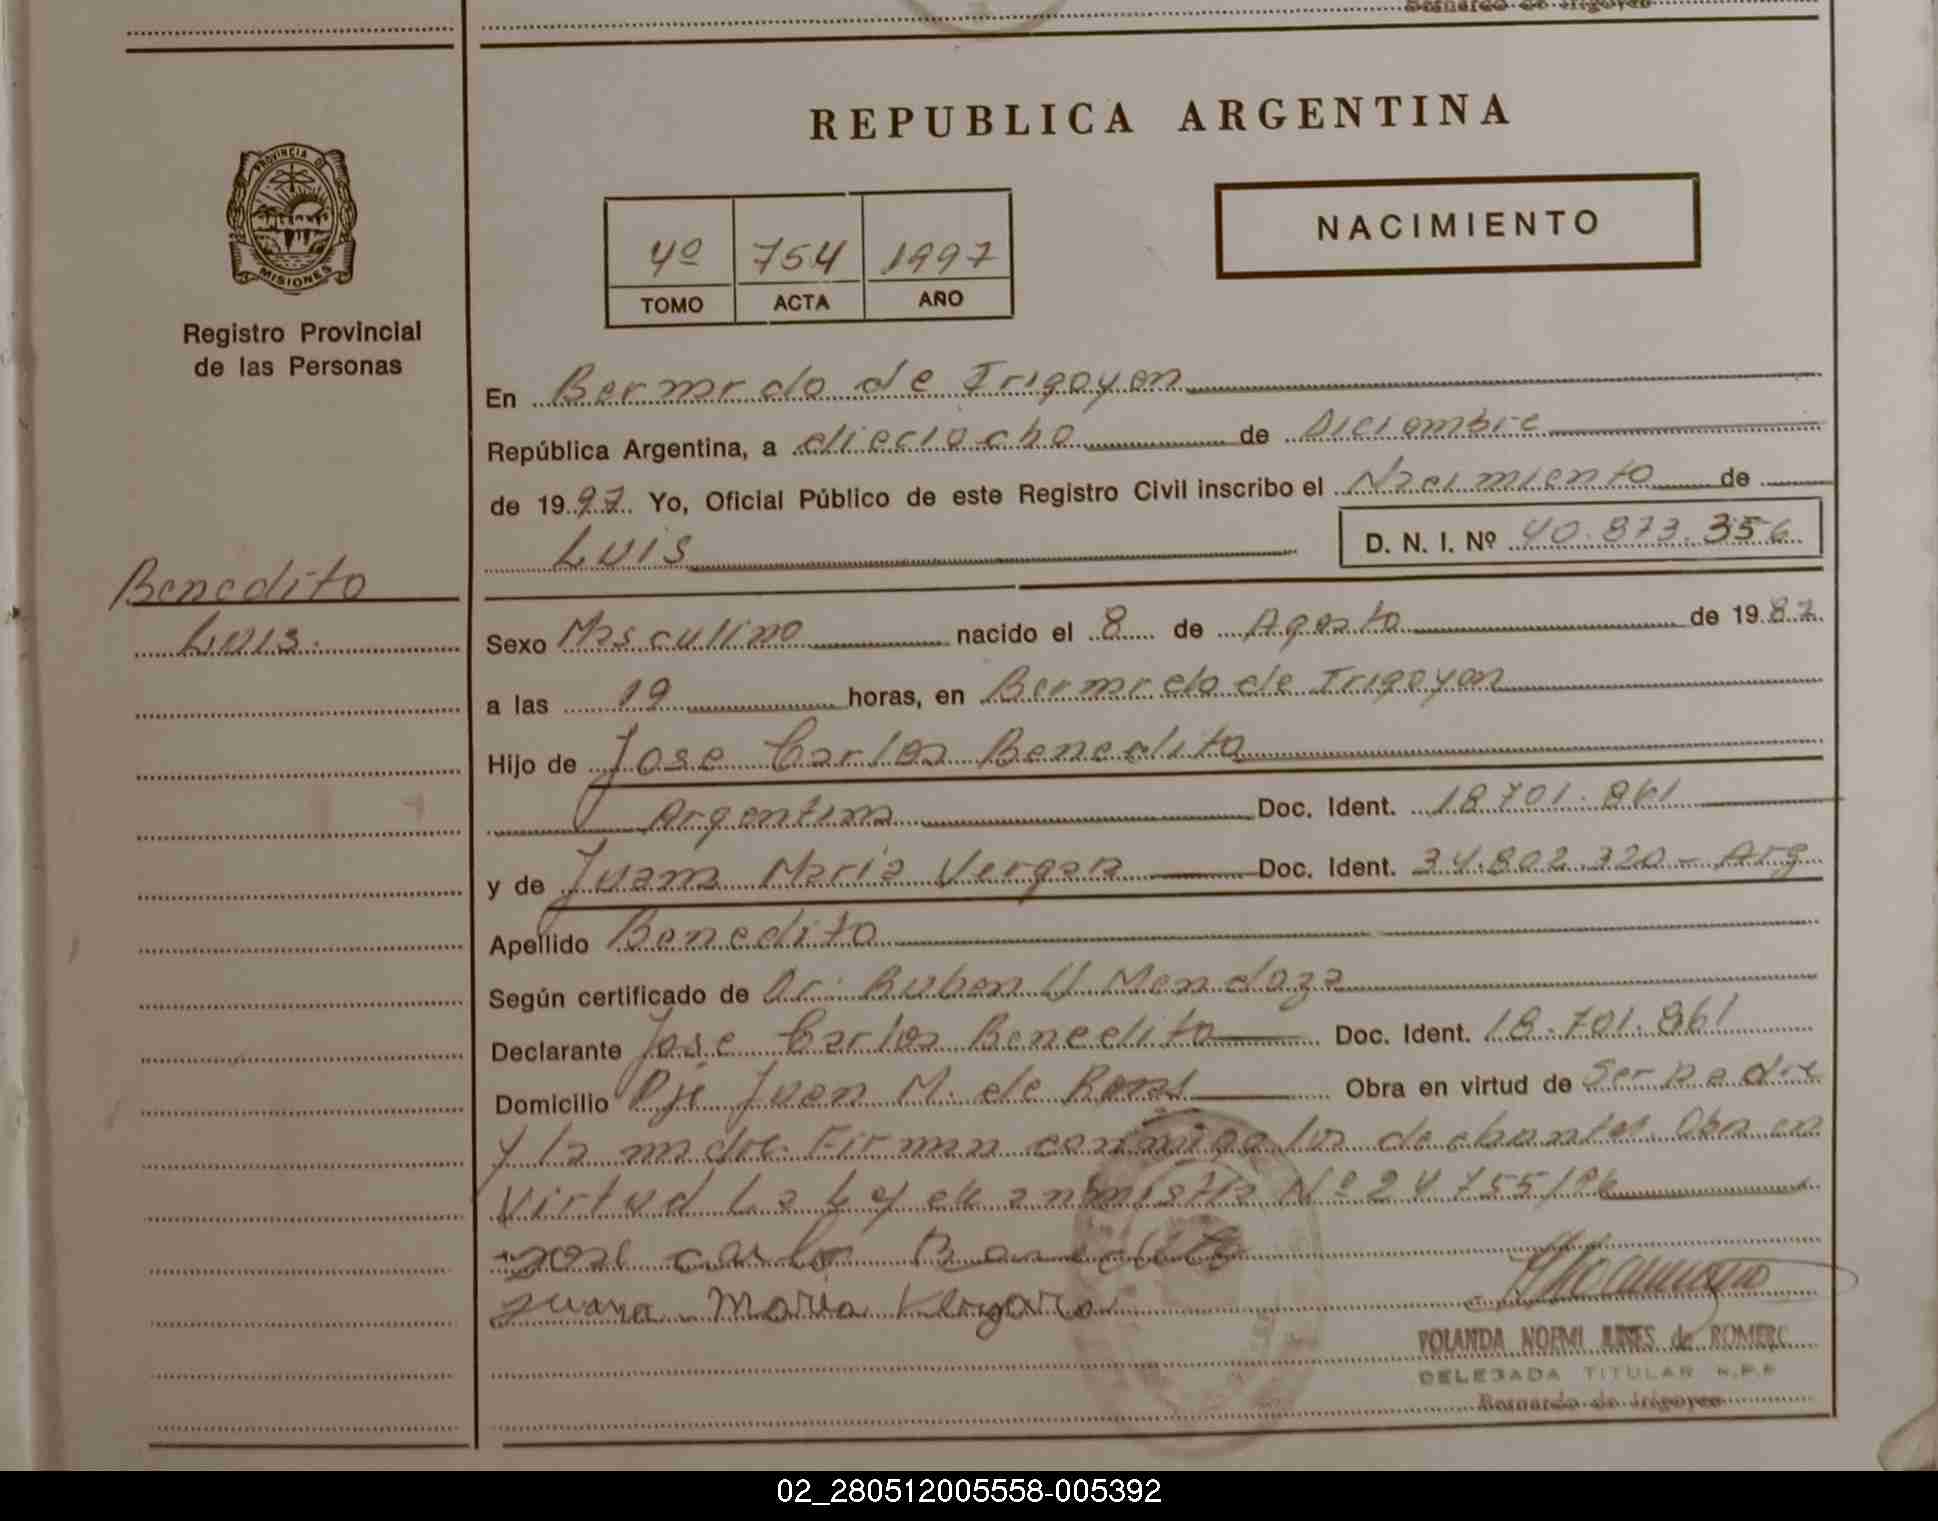 Bernardo de Irigoyen
REPUBLICA ARGENTINA
PROVINCIA DE
MISIONES
Registro Provincial
de las Personas
NACIMIENTO
4º 754 1997
TOMO ACTA AÑO
En Bernardo de Irigoyen
República Argentina, a dieciocho de Diciembre
de 1997 Yo, Oficial Público de este Registro Civil inscribo el Nacimiento de
Luis D. N. I. Nº 40.873.356
Benedito
Luis.
Sexo Masculino nacido el 8 de Agosto de 1987
a las 19 horas, en Bernardo de Irigoyen
Hijo de Jose Carlos Benedito
Argentina Doc. Ident. 18.701.861
y de Juana Maria Vergara Doc. Ident. 34.802.320 - Arg
Apellido Benedito
Según certificado de Dr. Ruben U Mendoza
Declarante Jose Carlos Benedito Doc. Ident. 18.701.861
Domicilio Pje Juan M. de Rosas Obra en virtud de Ser padre
y la madre. Firman conmigo los declarantes. Obra en
virtud La Ley de amnistia Nº 24755/96
Jose Carlos Benedito
Juana Maria Vergara
YOLANDA NOEMI de ROMERO
DELEGADA TITULAR R.P.P
Bernardo de Irigoyen
02_280512005558-005392